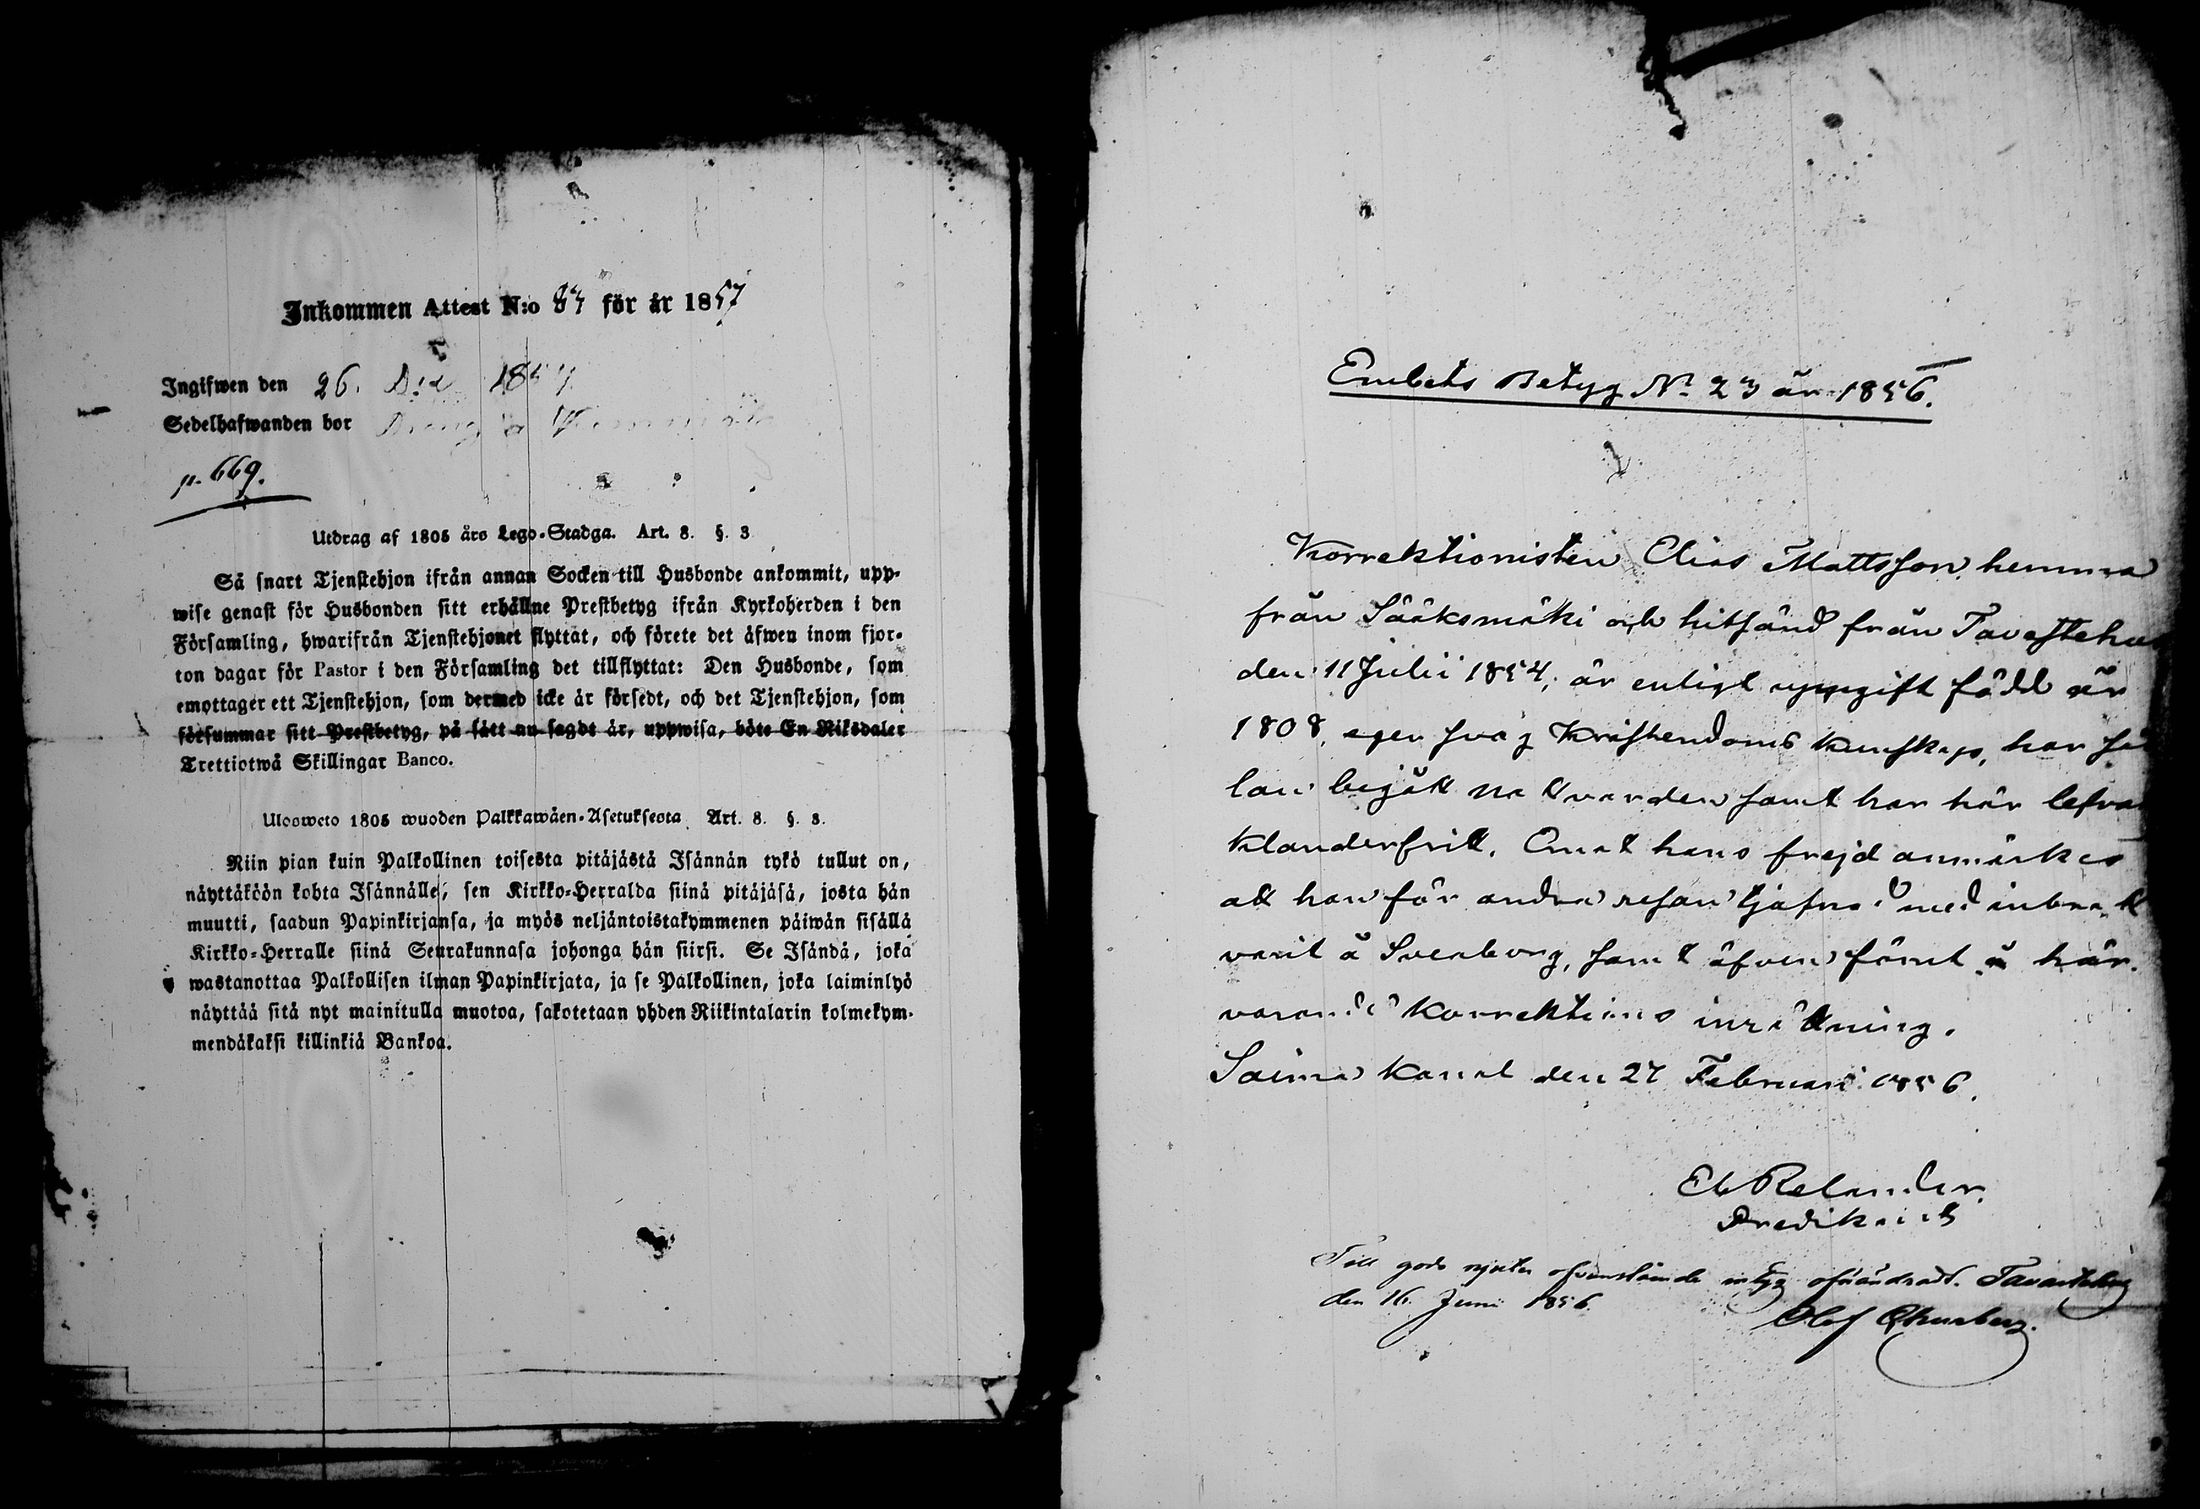 Inkommen Attest N:o 83 för år 1857
Ingifwen den 26. Dec 1857
Sedelhafwanden bor Dräng å
p. 669.
Utdrag af 1805 års Lego-Stadga. Art. 8. §. 3
Så snart Tjenstehjon ifrån annan Socken till Husbonde ankommit, upp-
wise genast för Husbonden sitt erhållne Prestbetyg ifrån Kyrkoherden i den
Församling, hwarifrån Tjenstehjonet flyttat, och förete det äfwen inom fjor-
ton dagar för Pastor i den Församling det tillflyttat: Den Husbonde, som
emottager ett Tjenstehjon, som dermed icke är försedt, och det Tjenstehjon, som
försummar sitt Prestbetyg, på sätt nu sagdt är, uppwisa, böte En Riksdaler
Trettiotwå Skillingar Banco.
Ulosweto 1805 wuoden Palkkawäen-Asetuksesta Art. 8. §. 3.
Niin pian kuin Palkollinen toisesta pitäjästä Isännän tykö tullut on,
näyttäköön kohta Isännälle, sen Kirkko-Herralda siinä pitäjäsä, josta hän
muutti, saadun Papinkirjansa, ja myös neljäntoistakymmenen päiwän sisällä
Kirkko-Herralle siinä Seurakunnasa johonga hän siirsi. Se Isändä, joka
wastanottaa Palkollisen ilman Papinkirjata, ja se Palkollinen, joka laiminlyö
näyttää sitä nyt mainitulla muotoa, sakotetaan yhden Riikintalarin kolmekym-
mendäkaksi killinkiä Bankoa.
Embets Betyg No 23 år 1856.
Korrektionisten Elias Mattsson, hemma
från Sääksmäki och hitsänd från Tavastehus
den 11 Julii 1854, är enligt uppgift född år
1808, eger svag Kristendoms kunskap, har så
lan begått nattvarden samt har här lefvat
klanderfritt. Om hans frejd anmärkes
att han för andra resan tjufnad med inbrott
varit å Sveaborg, samt äfven förut å här
varande Korrektions inrättning.
Saima Kanal den 27 Februari 1856.
El Relander.
Predikant
Till godo njuter ofvanstående intyg oförändradt. Tavastehus
den 16. Juni 1856.
Olof